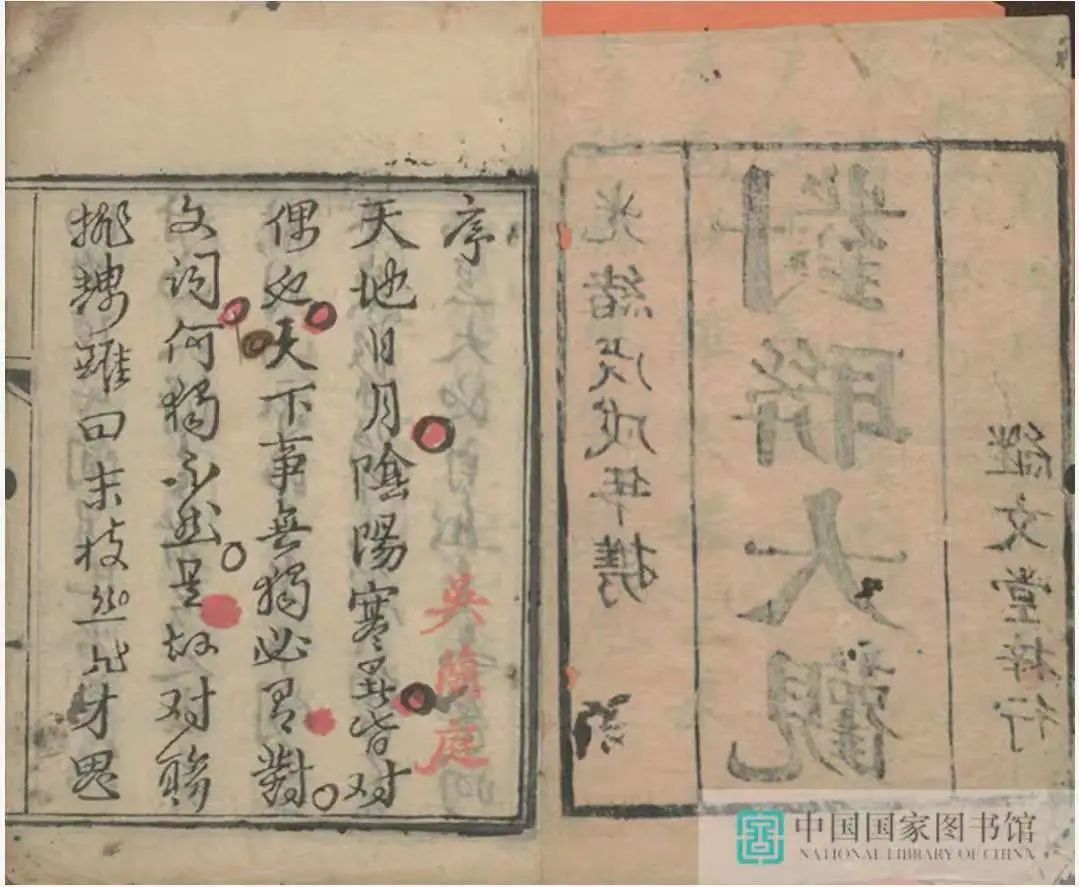 經文堂梓行
對聯大觀
光緒戊戌年
序
吳蔭庭
天地日月陰陽寒暑皆对
偶也天下事無獨必有對
文词何獨不然是故对聯
排耦雖曰末技然非才思
中国国家图书馆
NATIONAL LIBRARY OF CHINA